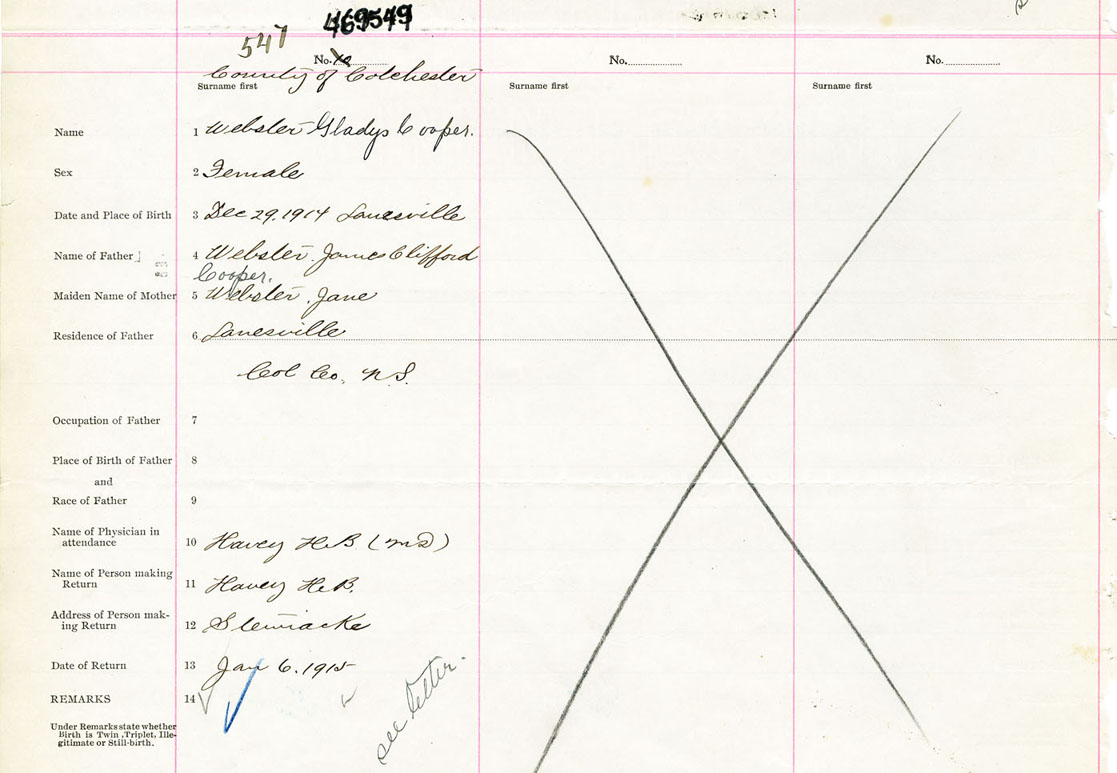 469549
547
No. No. No.
County of Colchester
Surname first Surname first Surname first
Name 1 Webster Gladys Cooper.
Sex 2 Female
Date and Place of Birth 3 Dec 29. 1914 Lanesville
Name of Father 4 Webster. James Clifford
Cooper.
Maiden Name of Mother 5 Webster, Jane
Residence of Father 6 Lanesville
Col Co, N.S.
Occupation of Father 7
Place of Birth of Father 8
and
Race of Father 9
Name of Physician in
attendance 10 Havey H.B (MD)
Name of Person making
Return 11 Havey H.B.
Address of Person mak-
ing Return 12 Stewiacke
Date of Return 13 Jan 6. 1915
REMARKS 14
see letter.
Under Remarks state whether
Birth is Twin, Triplet, Ille-
gitimate or Still-birth.